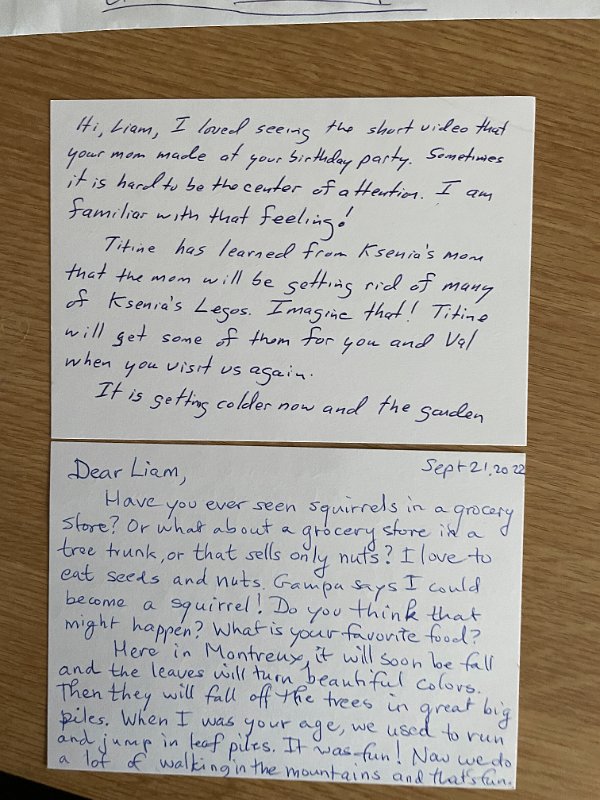 Hi, Liam, I loved seeing the short video that
your mom made at your birthday party. Sometimes
it is hard to be the center of attention. I am
familiar with that feeling!
Titine has learned from Ksenia's mom
that the mom will be getting rid of many
of Ksenia's Legos. Imagine that! Titine
will get some of them for you and Val
when you visit us again.
It is getting colder now and the garden
Sept 21, 2022
Dear Liam,
Have you ever seen squirrels in a grocery
store? Or what about a grocery store in a
tree trunk, or that sells only nuts? I love to
eat seeds and nuts. Gampa says I could
become a squirrel! Do you think that
might happen? What is your favorite food?
Here in Montreux, it will soon be fall
and the leaves will turn beautiful colors.
Then they will fall off the trees in great big
piles. When I was your age, we used to run
and jump in leaf piles. It was fun! Now we do
a lot of walking in the mountains and that's fun.